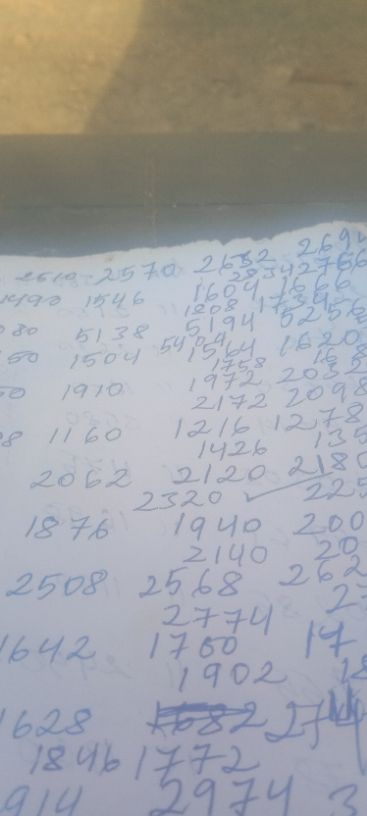 2610 2570 2632 269
2834 2766
1490 1546 1604 1666
1808 1734
080 5138 5194 5256
5404
50 1504 1564 1620
1758 168
50 1910 1972 2032
2172 2098
08 1160 1216 1278
1426 135
2062 2120 2180
2320 ✓ 225
1876 1940 200
2140 20
2508 2568 262
2774 2
1642 1700 17
1902 18
1628 1682 2744
1846 1772
914 2974 3